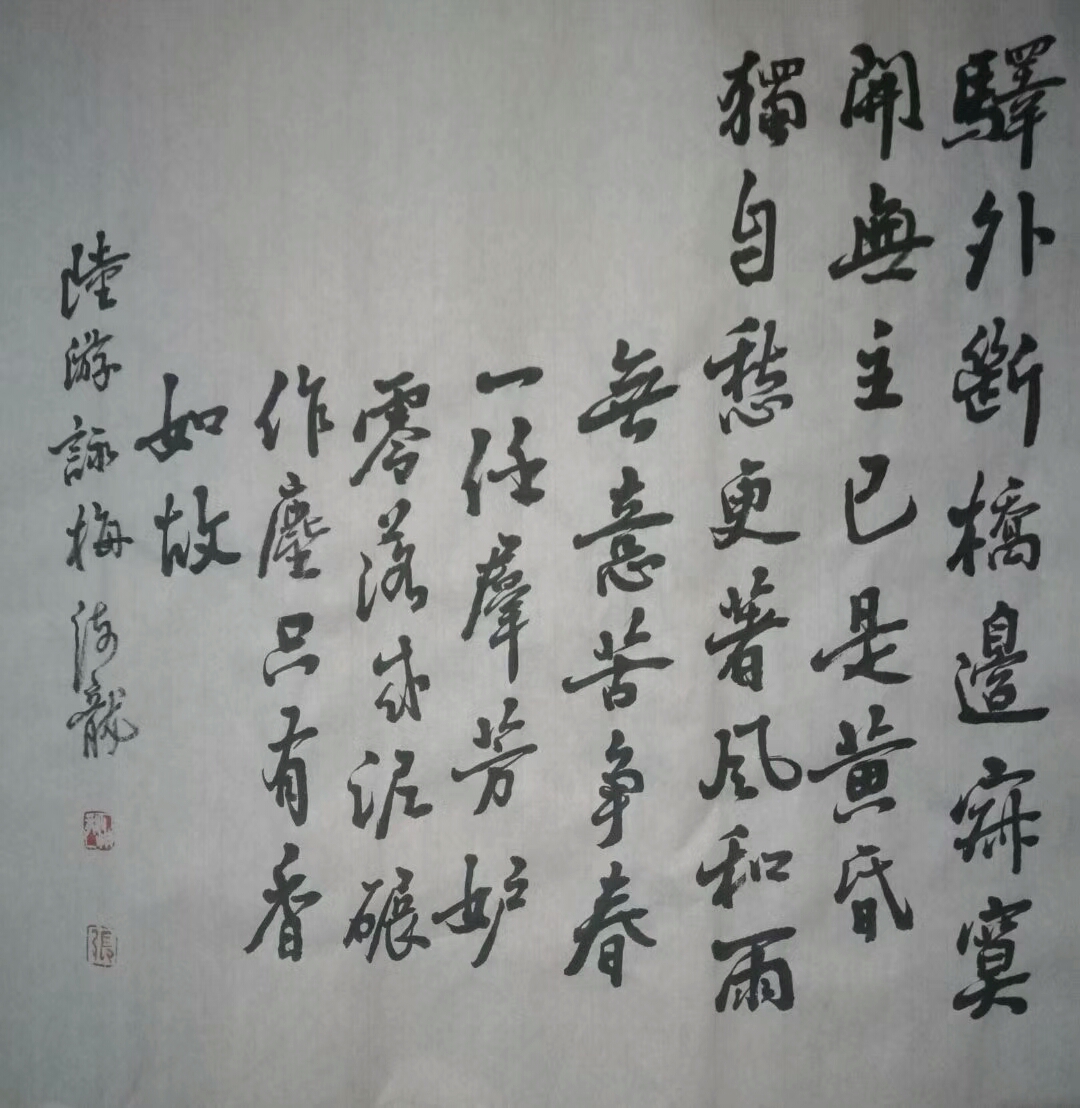 驛外斷橋邊寂寞
開無主已是黄昏
獨自愁更著風和雨
無意苦争春
一任羣芳妒
零落成泥碾
作塵只有香
如故
陸游詠梅 龍
張